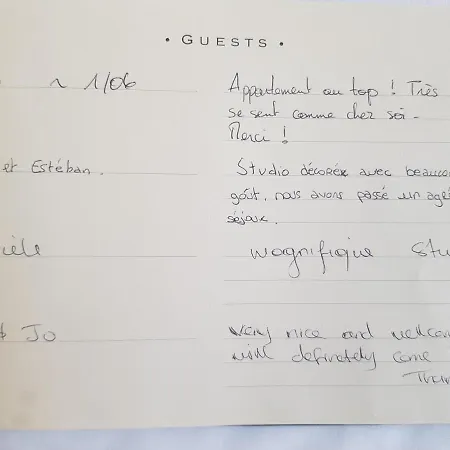 • GUESTS •
~ 1/06
Appartement au top ! Très
se sent comme chez soi -
Merci !
et Estéban.
Studio décorée avec beaucou
goût, nous avons passé un agré
séjour.
ièle
magnifique Stu
& Jo
very nice and welcom
will definately come
Than